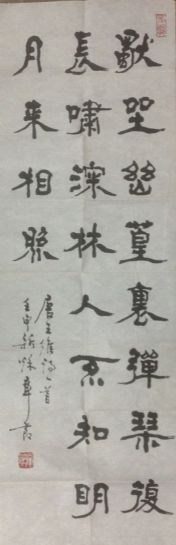 獨坐幽篁裏彈琴復
長嘯深林人不知明
月来相照
唐王維詩一首
壬申新秋章